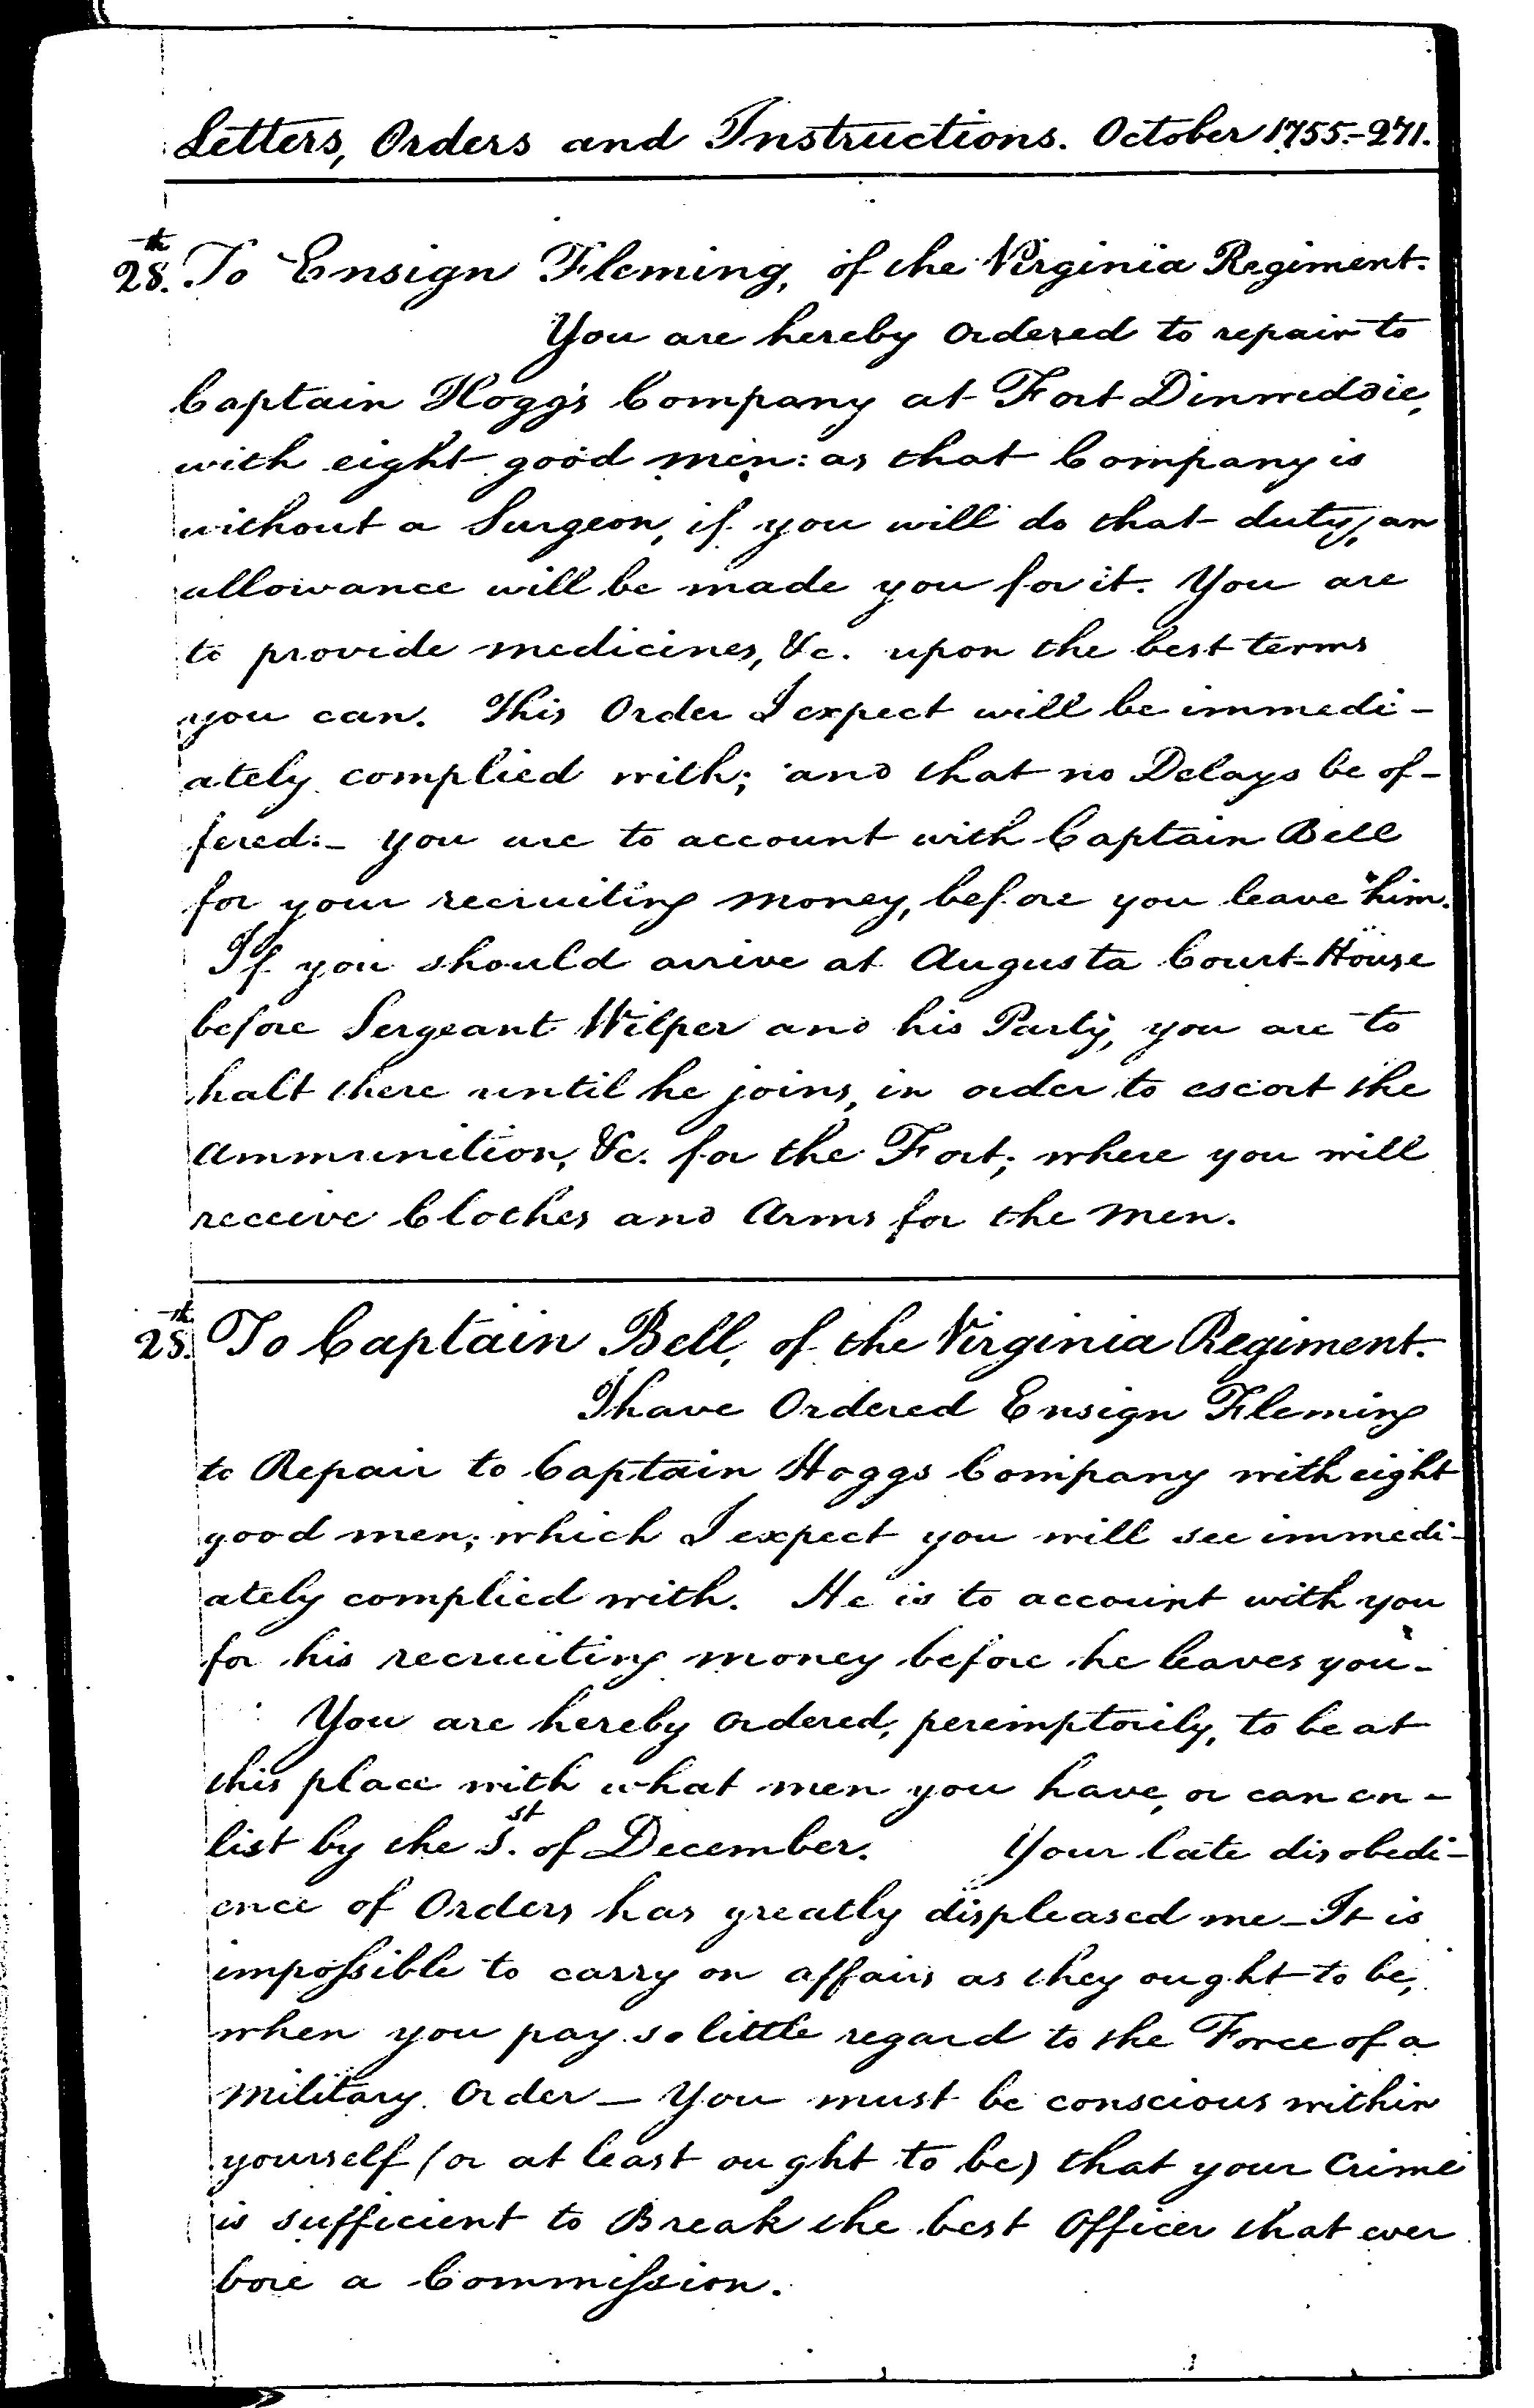 Letters, Orders and Instructions. October 1755.-271.
28.th To Ensign Fleming, of the Virginia Regiment.
You are hereby Ordered to repair to
Captain Hogg's Company at Fort Dinwiddie,
with eight good men: as that Company is
without a Surgeon, if you will do that duty, an
allowance will be made you for it. You are
to provide medicines, &c. upon the best terms
you can. This Order I expect will be immedi-
ately complied with; and that no Delays be of-
fered:- you are to account with Captain Bell
for your recruiting money, before you leave him.
If you should arrive at Augusta Court-House
before Sergeant Wilper and his Party, you are to
halt there until he joins, in order to escort the
Ammunition, &c. for the Fort; where you will
receive Clothes and Arms for the men.
28.th To Captain Bell, of the Virginia Regiment.
I have Ordered Ensign Fleming
to Repair to Captain Hoggs Company with eight
good men; which I expect you will see immedi-
ately complied with. He is to account with you
for his recruiting money before he leaves you-
You are hereby Ordered, peremptorily, to be at
this place with what men you have, or can en-
list by the 1.st of December. Your late disobedi-
ence of Orders has greatly displeased me-It is
impossible to carry on affairs as they ought to be,
when you pay so little regard to the Force of a
military Order- You must be conscious within
yourself (or at least ought to be) that your Crime
is sufficient to Break the best Officer that ever
bore a Commission.